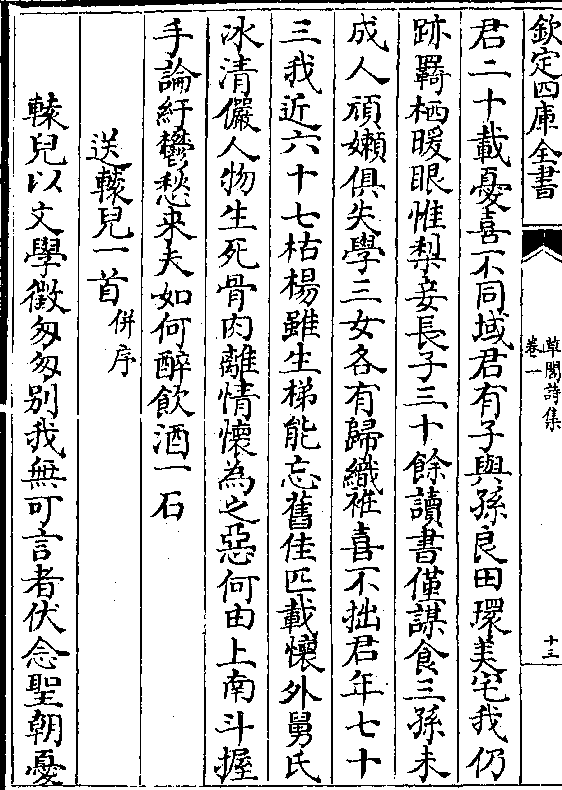 欽定四庫全書
草閣詩集
卷一
十三
君二十載憂喜不同域君有子與孫良田環美宅我仍
跡羇栖暖眼惟梨妾長子三十餘讀書僅謀食三孫未
成人頑嬾俱失學三女各有歸織袵喜不拙君年七十
三我近六十七枯楊雖生梯能忘舊佳匹載懷外舅氏
冰清儷人物生死骨肉離情懷為之惡何由上南斗握
手論紆鬱愁來夫如何醉飲酒一石
送轅兒一首併序
轅兒以文學徵匆匆别我無可言者伏念聖朝憂